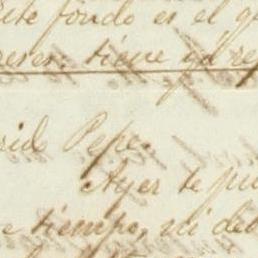 este fondo es el q
reses. tiene ya re
rid Pepe.
Ayer te pu
e tiempo, mi deb